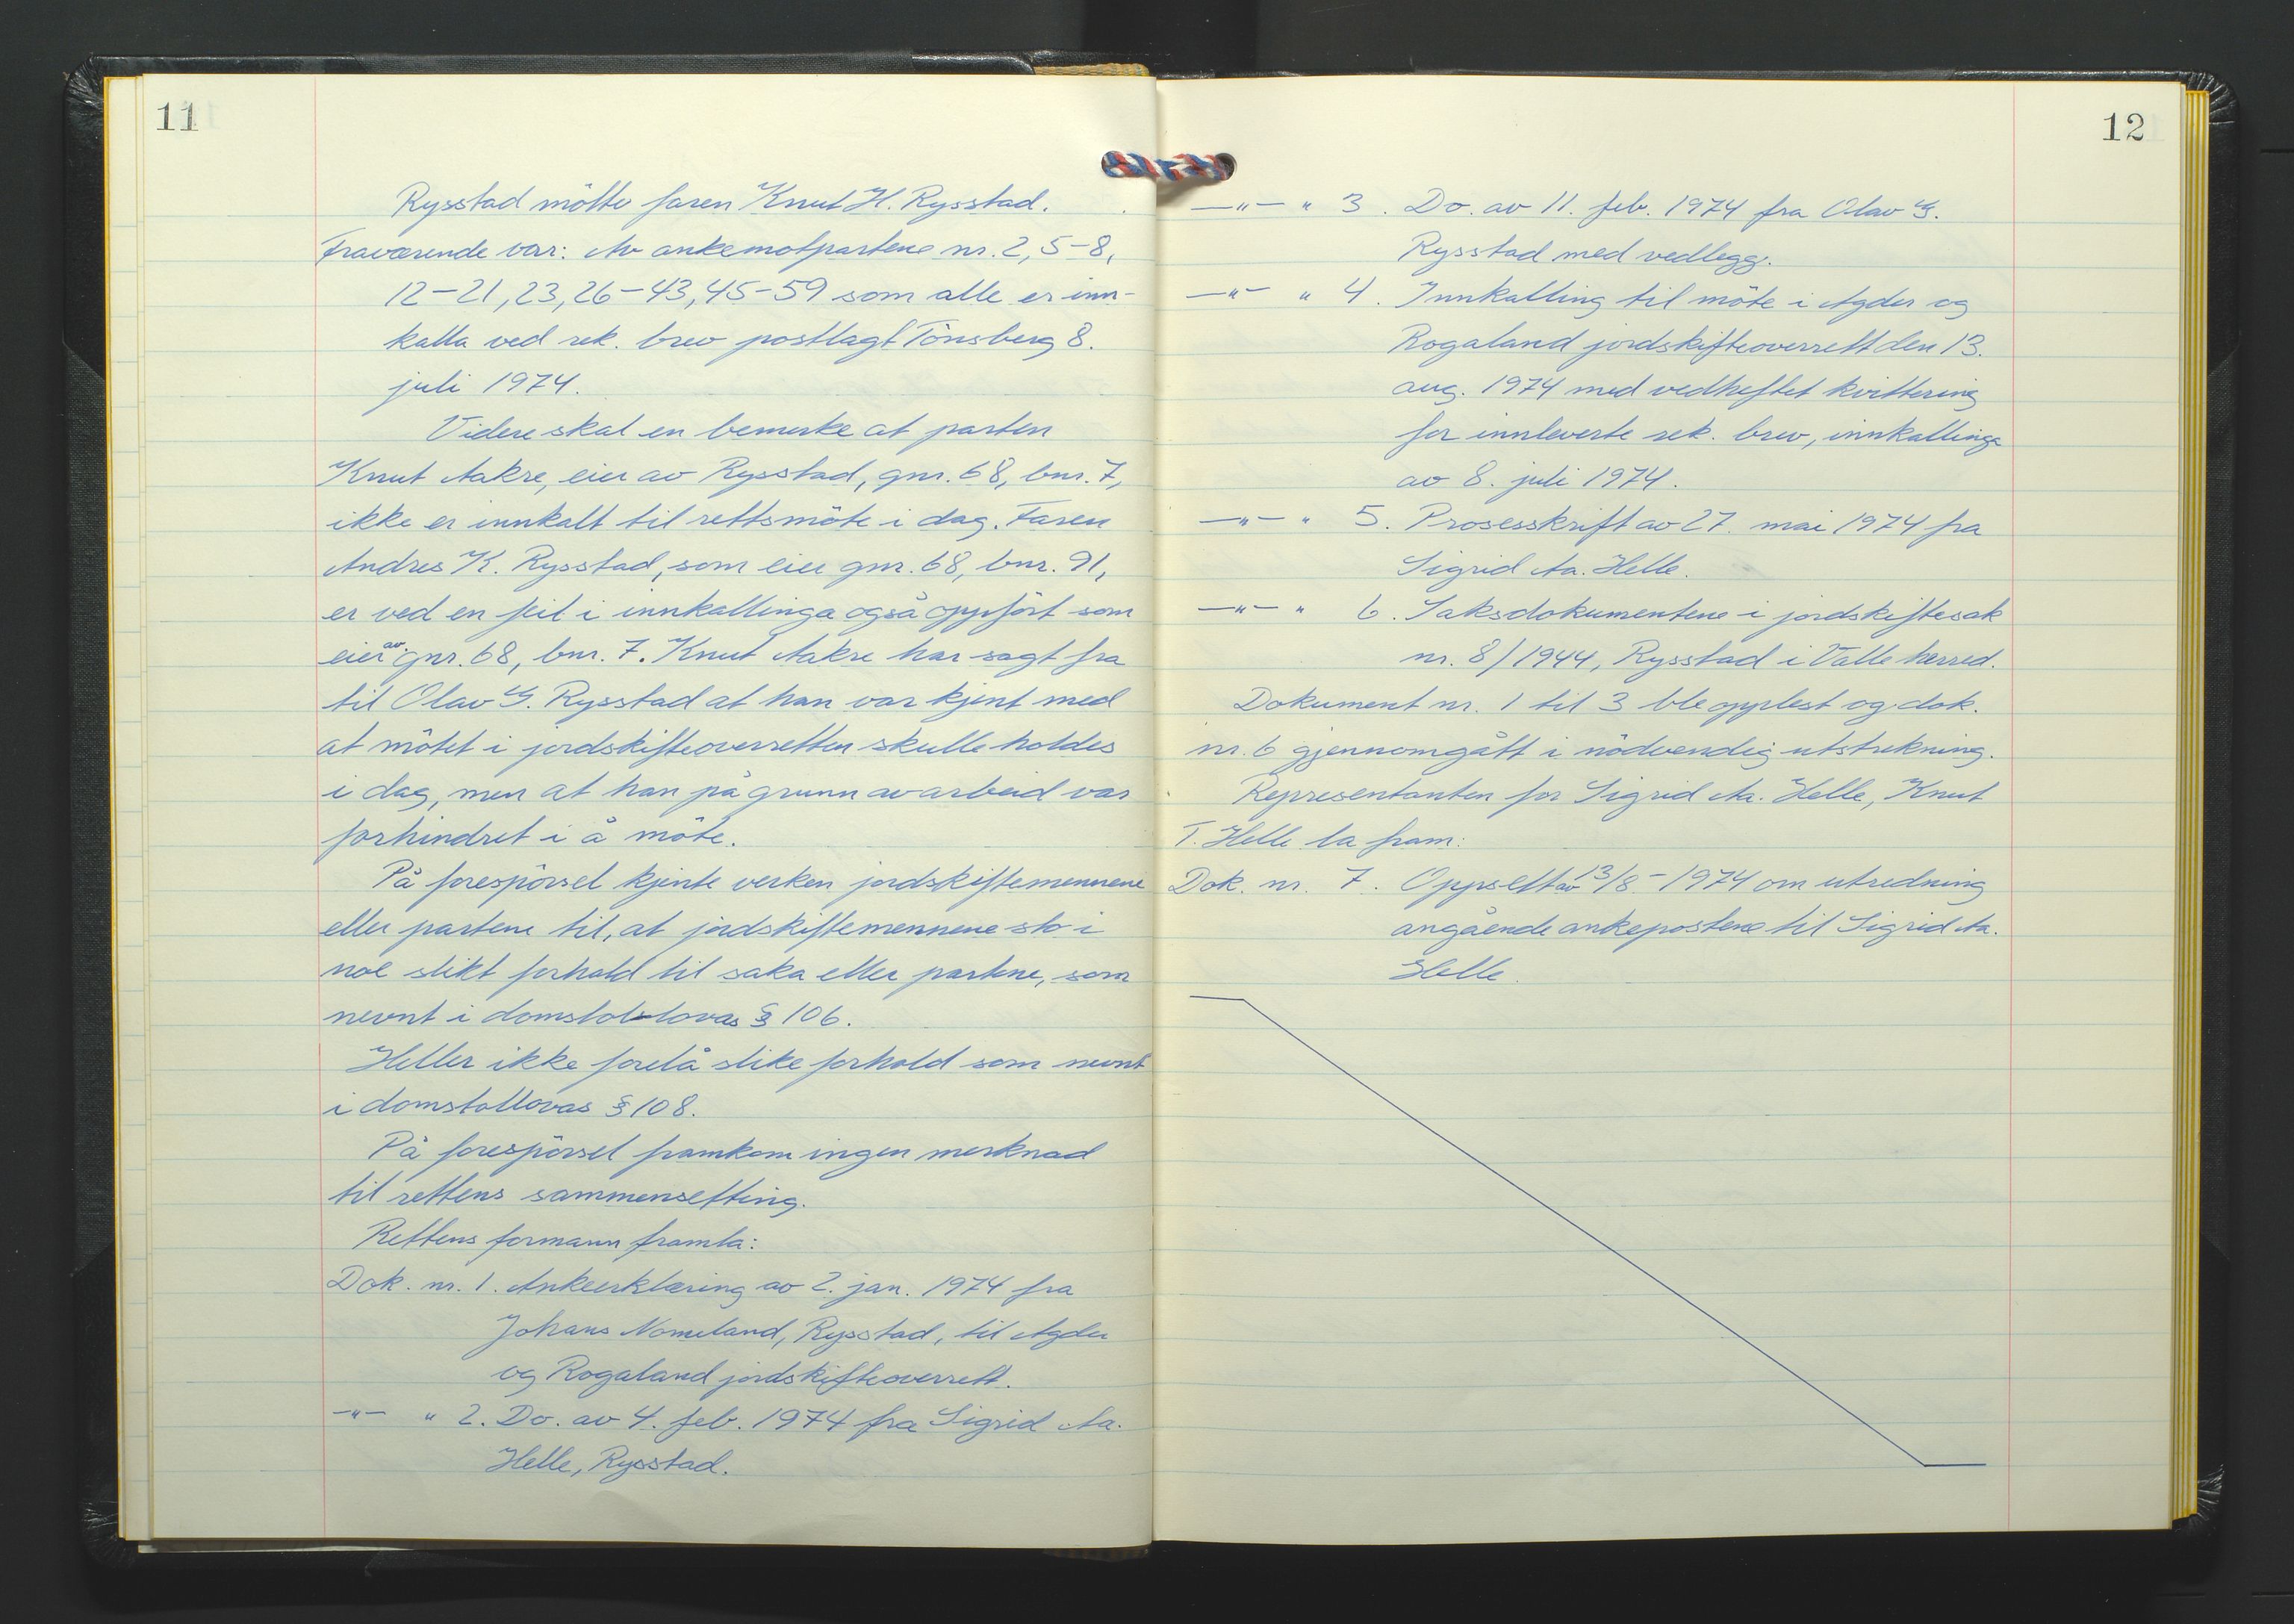 11
Rysstad mötte faren Knut H. Rysstad.
Fraværende var: Av ankemotpartene nr. 2, 5-8,
12-21, 23, 26-43, 45-59 som alle er inn-
kalla ved rek. brev postlagt Tönsberg 8.
juli 1974.
Videre skal en bemerke at parten
Knut Aakre, eier av Rysstad, gnr. 68, bnr. 7,
ikke er innkalt til rettsmöte i dag. Faren
Andres K. Rysstad, som eier gnr. 68, bnr. 91,
er ved en feil i innkallinga også oppfört som
eier av gnr. 68, bnr. 7. Knut Aakre har sagt fra
til Olav G. Rysstad at han var kjent med
at mötet i jordskifteoverretten skulle holdes
i dag, men at han på grunn av arbeid var
forhindret i å möte.
På forespörsel kjente verken jordskiftemennene
eller partene til, at jordskiftemennene sto i
noe slikt forhold til saka eller partene, som
nevnt i domstolslovas § 106.
Heller ikke forelå slike forhold som nevnt
i domstollovas § 108.
På forespörsel framkom ingen merknad
til rettens sammensetting.
Rettens formann framla:
Dok. nr. 1. Ankeerklæring av 2. jan. 1974 fra
Johans Nomeland, Rysstad, til Agder
og Rogaland jordskifteoverrett.
—"— " 2. Do. av 4. feb. 1974 fra Sigrid Aa.
Helle, Rysstad.
12
—"— " 3. Do. av 11. feb. 1974 fra Olav G.
Rysstad med vedlegg.
—"— " 4. Innkalling til möte i Agder og
Rogaland jordskifteoverrett den 13.
aug. 1974 med vedheftet kvittering
for innleverte rek. brev, innkallinga
av 8. juli 1974.
—"— " 5. Prosesskrift av 27. mai 1974 fra
Sigrid Aa. Helle.
—"— " 6. Saksdokumentene i jordskiftesak
nr. 8/1944, Rysstad i Valle herred.
Dokument nr. 1 til 3 ble opplest og dok.
nr. 6 gjennomgått i nödvendig utstrekning.
Representanten for Sigrid Aa. Helle, Knut
T. Helle la fram:
Dok. nr. 7. Oppsett av 13/8-1974 om utredning
angående ankepostene til Sigrid Aa.
Helle.